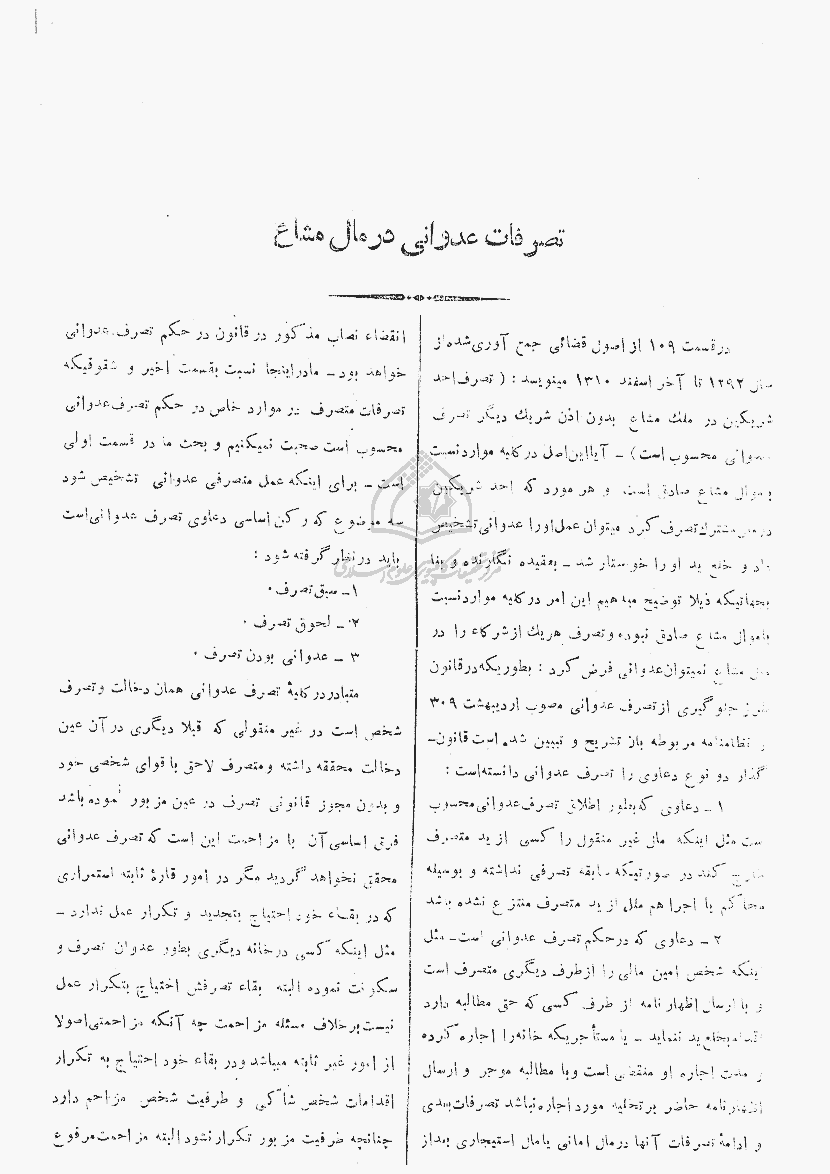 تصرفات عدوانی در مال مشاع
در قسمت ۱۰۹ از اصول قضائی جمع آوری شده از
سال ۱۲۹۲ تا آخر اسفند ۱۳۱۰ مینویسد : ( تصرف احد
شریکین در ملك مشاع بدون اذن شریك دیگر تصرف
عدوانی محسوب است ) ــ آیا این اصل در کلیه موارد نسبت
باموال مشاع صادق است و هر مورد که احد شریکین
در مال مشترك تصرف کرد میتوان عمل او را عدوانی تشخیص
داد و خلع ید او را خواستار شد ــ بعقیده نگارنده و بنا
بجهاتیکه ذیلا توضیح میدهیم این امر در کلیه موارد نسبت
باموال مشاع صادق نبوده و تصرف هریك از شرکاء را در
مال مشاع نمیتوان عدوانی فرض کرد : بطوریکه در قانون
طرز جلوگیری از تصرف عدوانی مصوب اردیبهشت ۳۰۹
و نظامنامه مربوطه بان تشریح و تبیین شده است قانون‌ــ
گذار دو نوع دعاوی را تصرف عدوانی دانسته‌است :
۱ ــ دعاوی که بطور اطلاق تصرف عدوانی محسوب
است مثل اینکه مال غیر منقول را کسی از ید متصرف
خارج کند در صورتیکه سابقه تصرفی نداشته و بوسیله
محاکم یا اجرا هم ملك از ید متصرف منتزع نشده باشد
۲ ــ دعاوی که در حکم تصرف عدوانی است ــ مثل
اینکه شخص امین مالی را از طرف دیگری متصرف است
و با ارسال اظهار نامه از طرف کسی که حق مطالبه دارد
اقدام بخلع ید ننماید ــ یا مستأجریکه خانه را اجاره کرده
و مدت اجاره او منقضی است و با مطالبه موجر و ارسال
اظهارنامه حاضر بر تخلیه مورد اجاره نباشد تصرفات بعدی
و ادامهٔ تصرفات آنها در مال امانی یا مال استیجاری بعد از
انقضاء نصاب مذکور در قانون در حکم تصرف عدوانی
خواهد بود ــ ما در اینجا نسبت بقسمت اخیر و شقوقیکه
تصرفات متصرف در موارد خاص در حکم تصرف عدوانی
محسوب است صحبت نمیکنیم و بحث ما در قسمت اولی
است ــ برای اینکه عمل متصرفی عدوانی تشخیص شود
سه موضوع که رکن اساسی دعاوی تصرف عدوانی است
باید در نظر گرفته شود :
۱ــ سبق تصرف ۰
۲ ــ لحوق تصرف ۰
۳ ــ عدوانی بودن تصرف ۰
متبادر در کلیهٔ تصرف عدوانی همان دخالت و تصرف
شخص است در غیر منقولی که قبلا دیگری در آن عین
دخالت محققه داشته و متصرف لاحق با قوای شخصی خود
و بدون مجوز قانونی تصرف در عین مزبور نموده باشد
فرق اساسی آن با مزاحمت این است که تصرف عدوانی
محقق نخواهد گردید مگر در امور قارهٔ ثابته استمراری
که در بقاء خود احتیاج بتجدید و تکرار عمل ندارد ــ
مثل اینکه کسی در خانه دیگری بطور عدوان تصرف و
سکونت نموده البته بقاء تصرفش احتیاج بتکرار عمل
نیست بر خلاف مسئله مزاحمت چه آنکه مزاحمتی اصولا
از امور غیر ثابته میباشد و در بقاء خود احتیاج به تکرار
اقدامات شخص شاکی و طرفیت شخص مزاحم دارد
چنانچه طرفیت مزبور تکرار نشود البته مزاحمت مرفوع
مرکز تحقیقات کامپیوتری علوم اسلامی